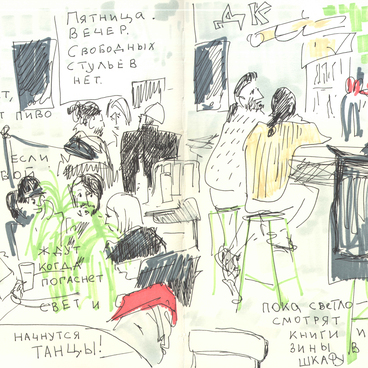 Пятница.
Вечер.
Свободных
стульев
нет.
ДК
т,
т пиво
если
вой
ждут
когда
погаснет
свет и
начнутся
танцы!
пока светло
смотрят
книги и
зины в
шкафу